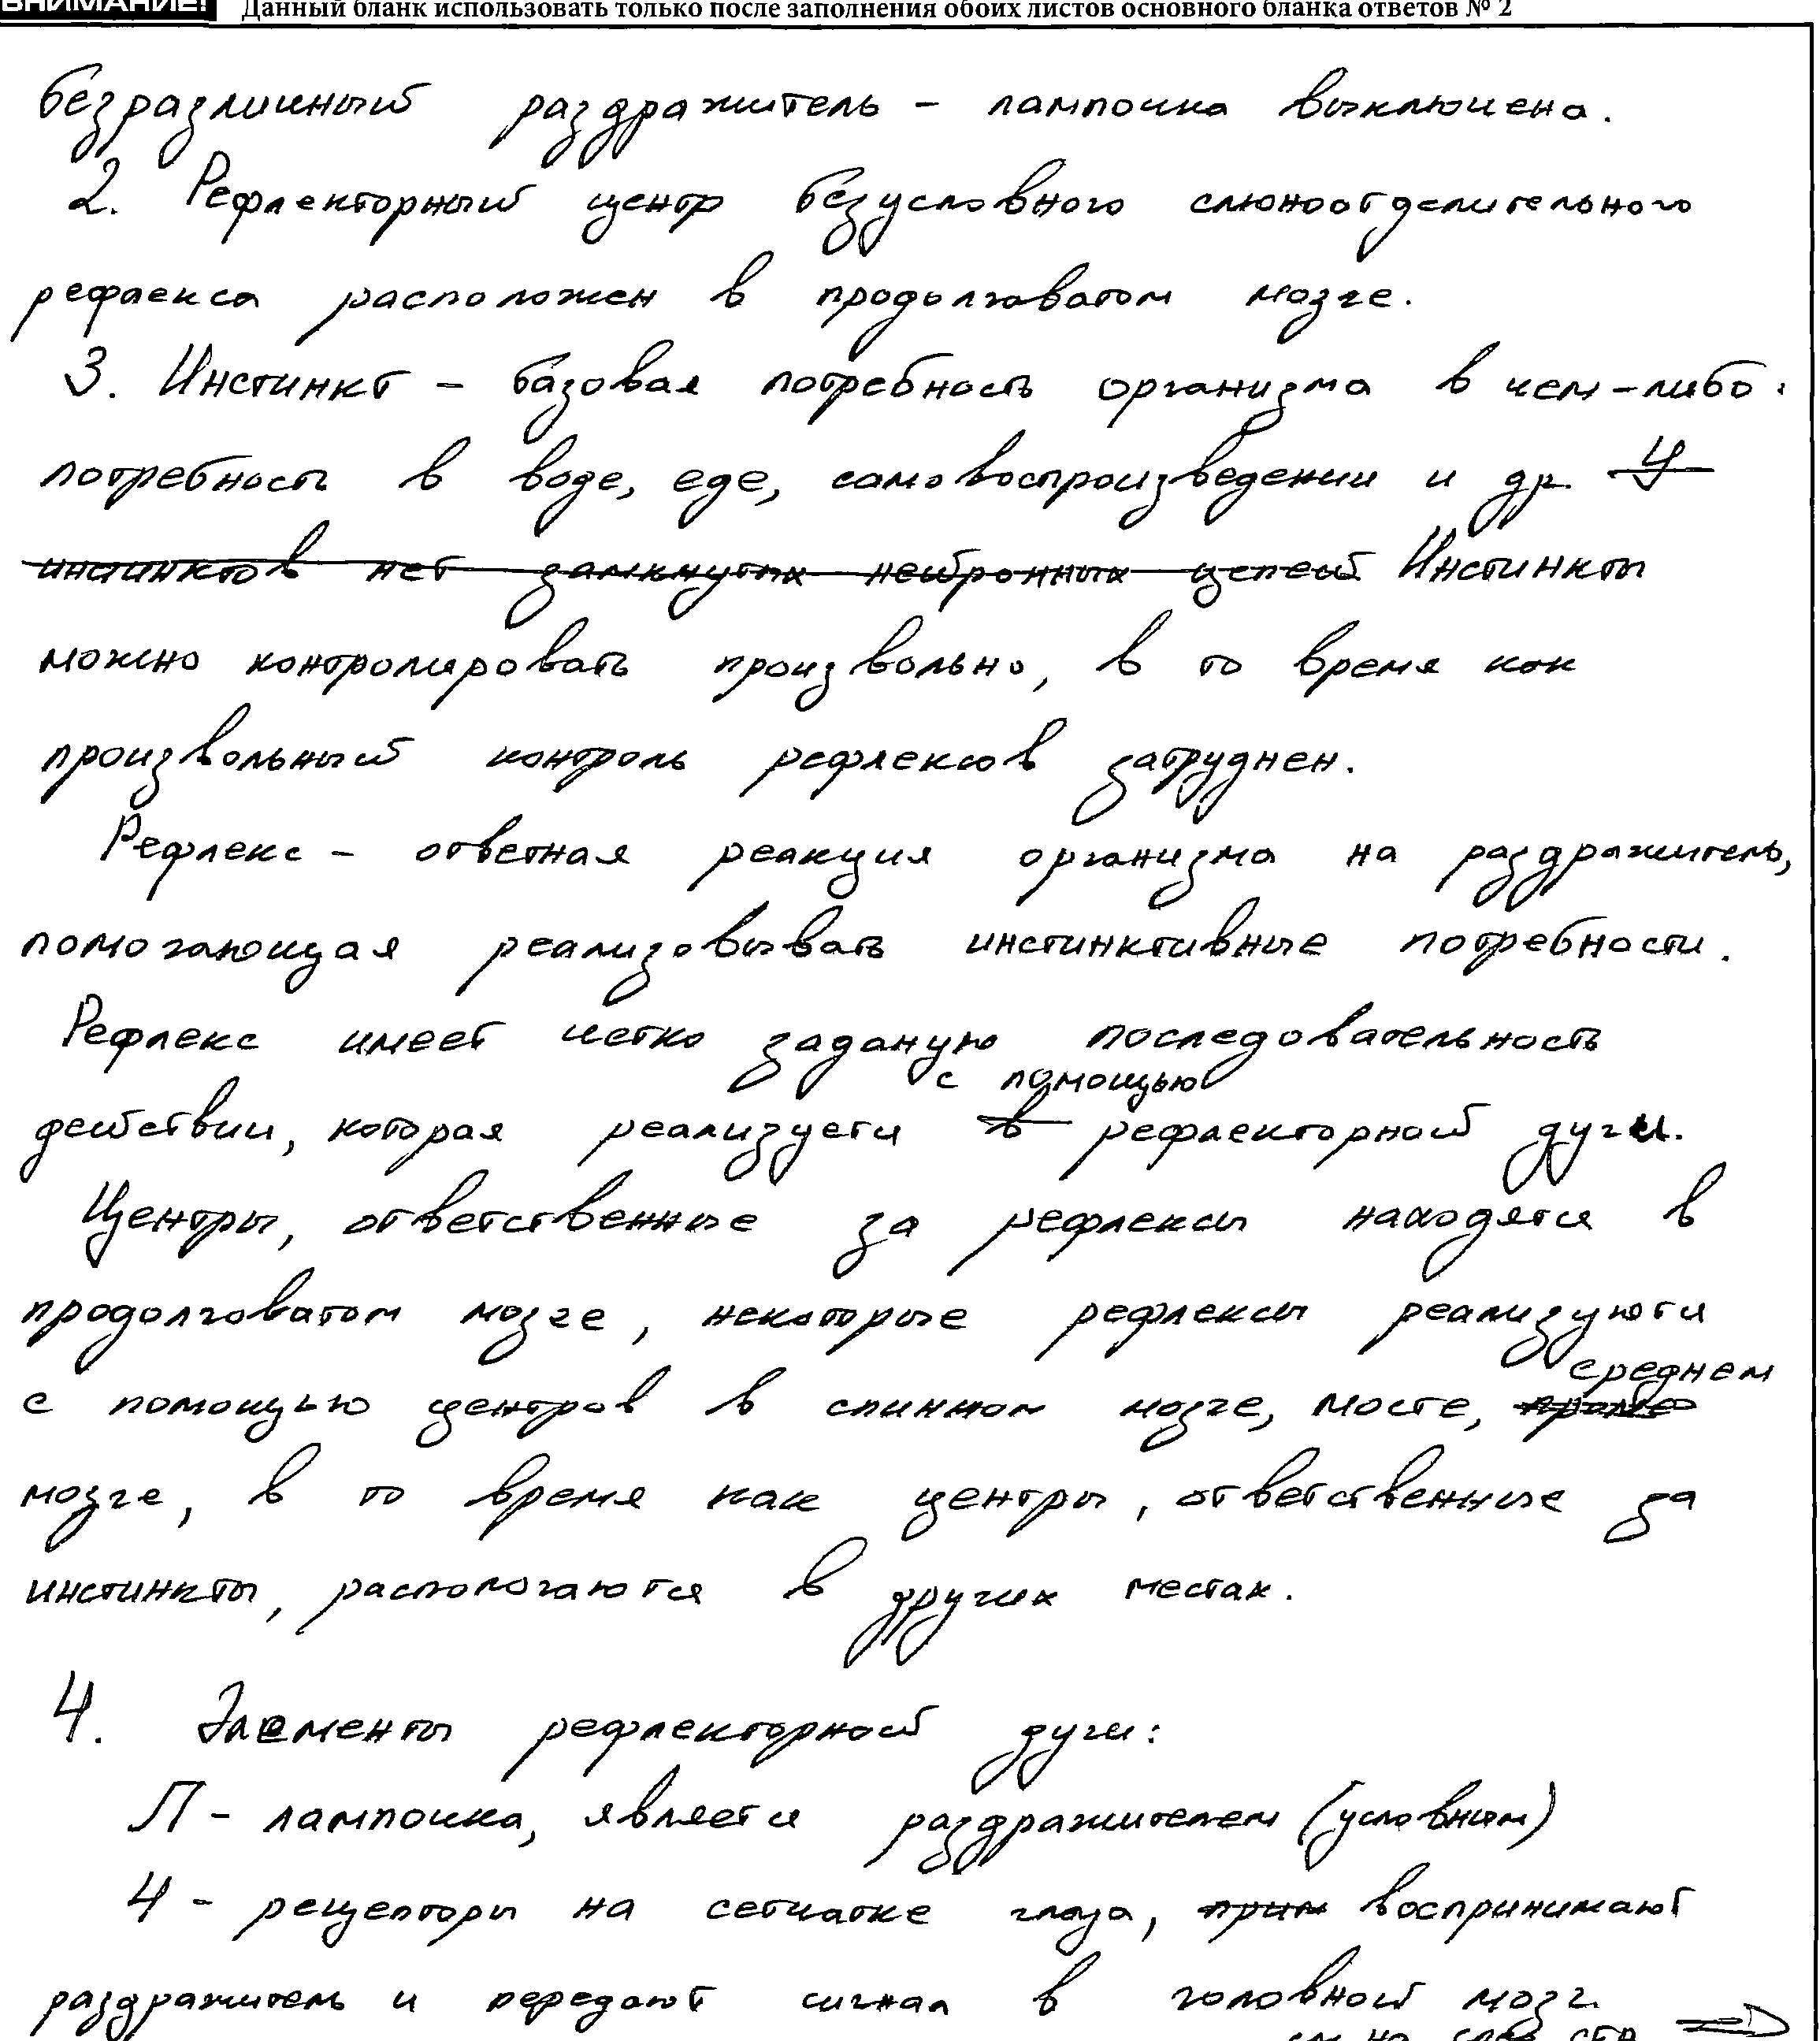 ВНИМАНИЕ! Данный бланк использовать только после заполнения обоих листов основного бланка ответов № 2
безразличный раздражитель - лампочка выключена.
2. Рефлекторный центр безусловного слюноотделительного
рефлекса расположен в продолговатом мозге.
3. Инстинкт - базовая потребность организма в чем-либо:
потребность в воде, еде, самовоспроизведении и др. У
инстинктов нет замкнутых нейронных цепей Инстинкты
можно контролировать произвольно, в то время как
произвольный контроль рефлексов затруднен.
Рефлекс - ответная реакция организма на раздражитель,
помогающая реализовывать инстинктивные потребности.
Рефлекс имеет четко заданую последовательность
с помощью
действии, которая реализуется в рефлекторной дуги.
Центры, ответственные за рефлексы находятся в
продолговатом мозге, некоторые рефлексы реализуются
среднем
с помощью центров в спинном мозге, мосте,
мозге, в то время как центры, ответственные за
инстинкты, распологаются в других местах.
4. Элементы рефлекторной дуги:
Л - лампочка, является раздражителем (условным)
4 - рецепторы на сетчатке глаза, прин воспринимают
раздражитель и передают сигнал в головной мозг.
см. на след. стр.